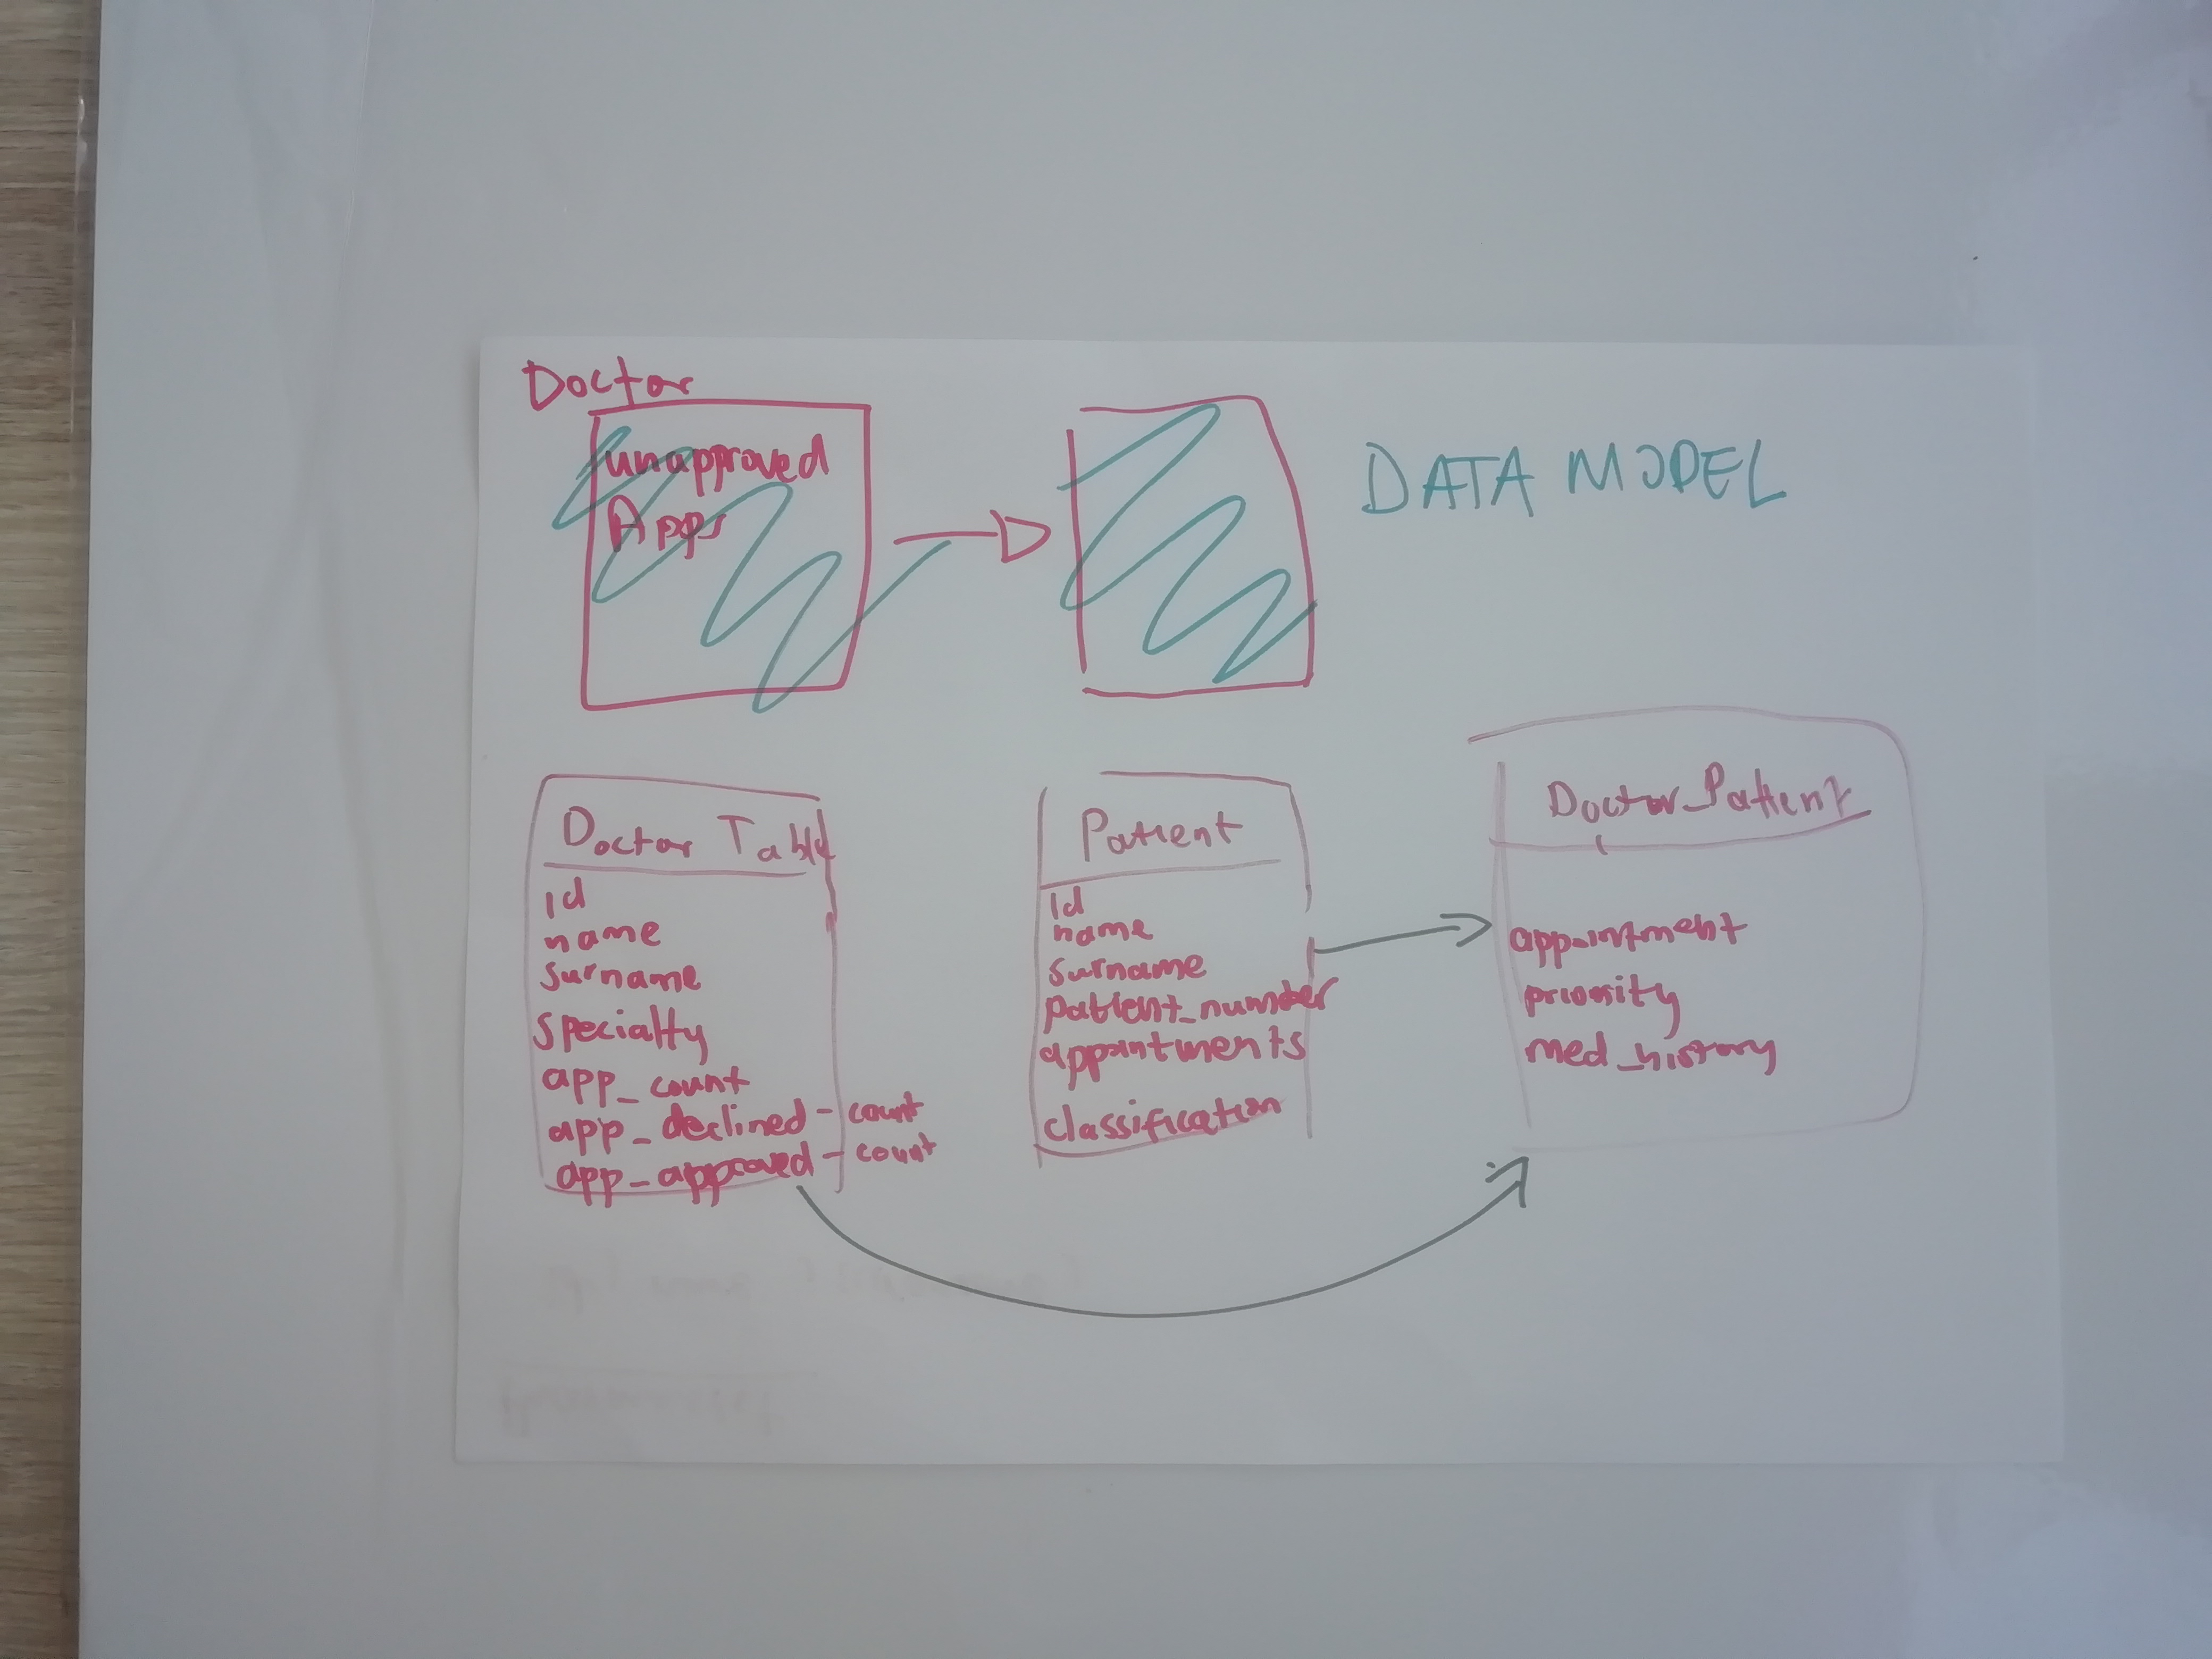 Doctor
unapproved
Apps
DATA MODEL
Doctor Table
id
name
surname
specialty
app_count
app_declined-count
app_approved-count
Patient
id
name
surname
patient_number
appointments
classification
Doctor_Patient
appointment
priority
med_history